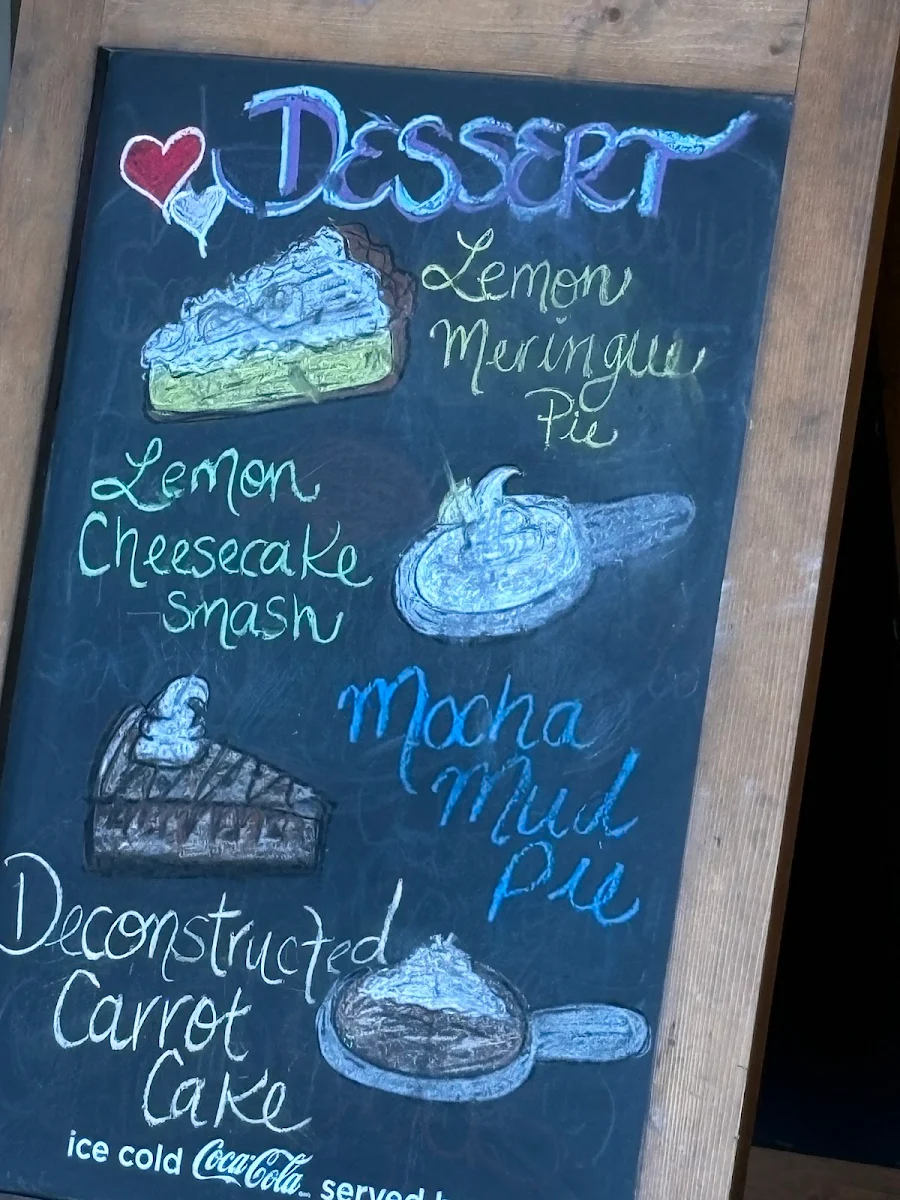 DESSERT
Lemon
Meringue
Pie
Lemon
Cheesecake
smash
Mocha
Mud
Pie
Deconstructed
Carrot
Cake
ice cold Coca-Cola served